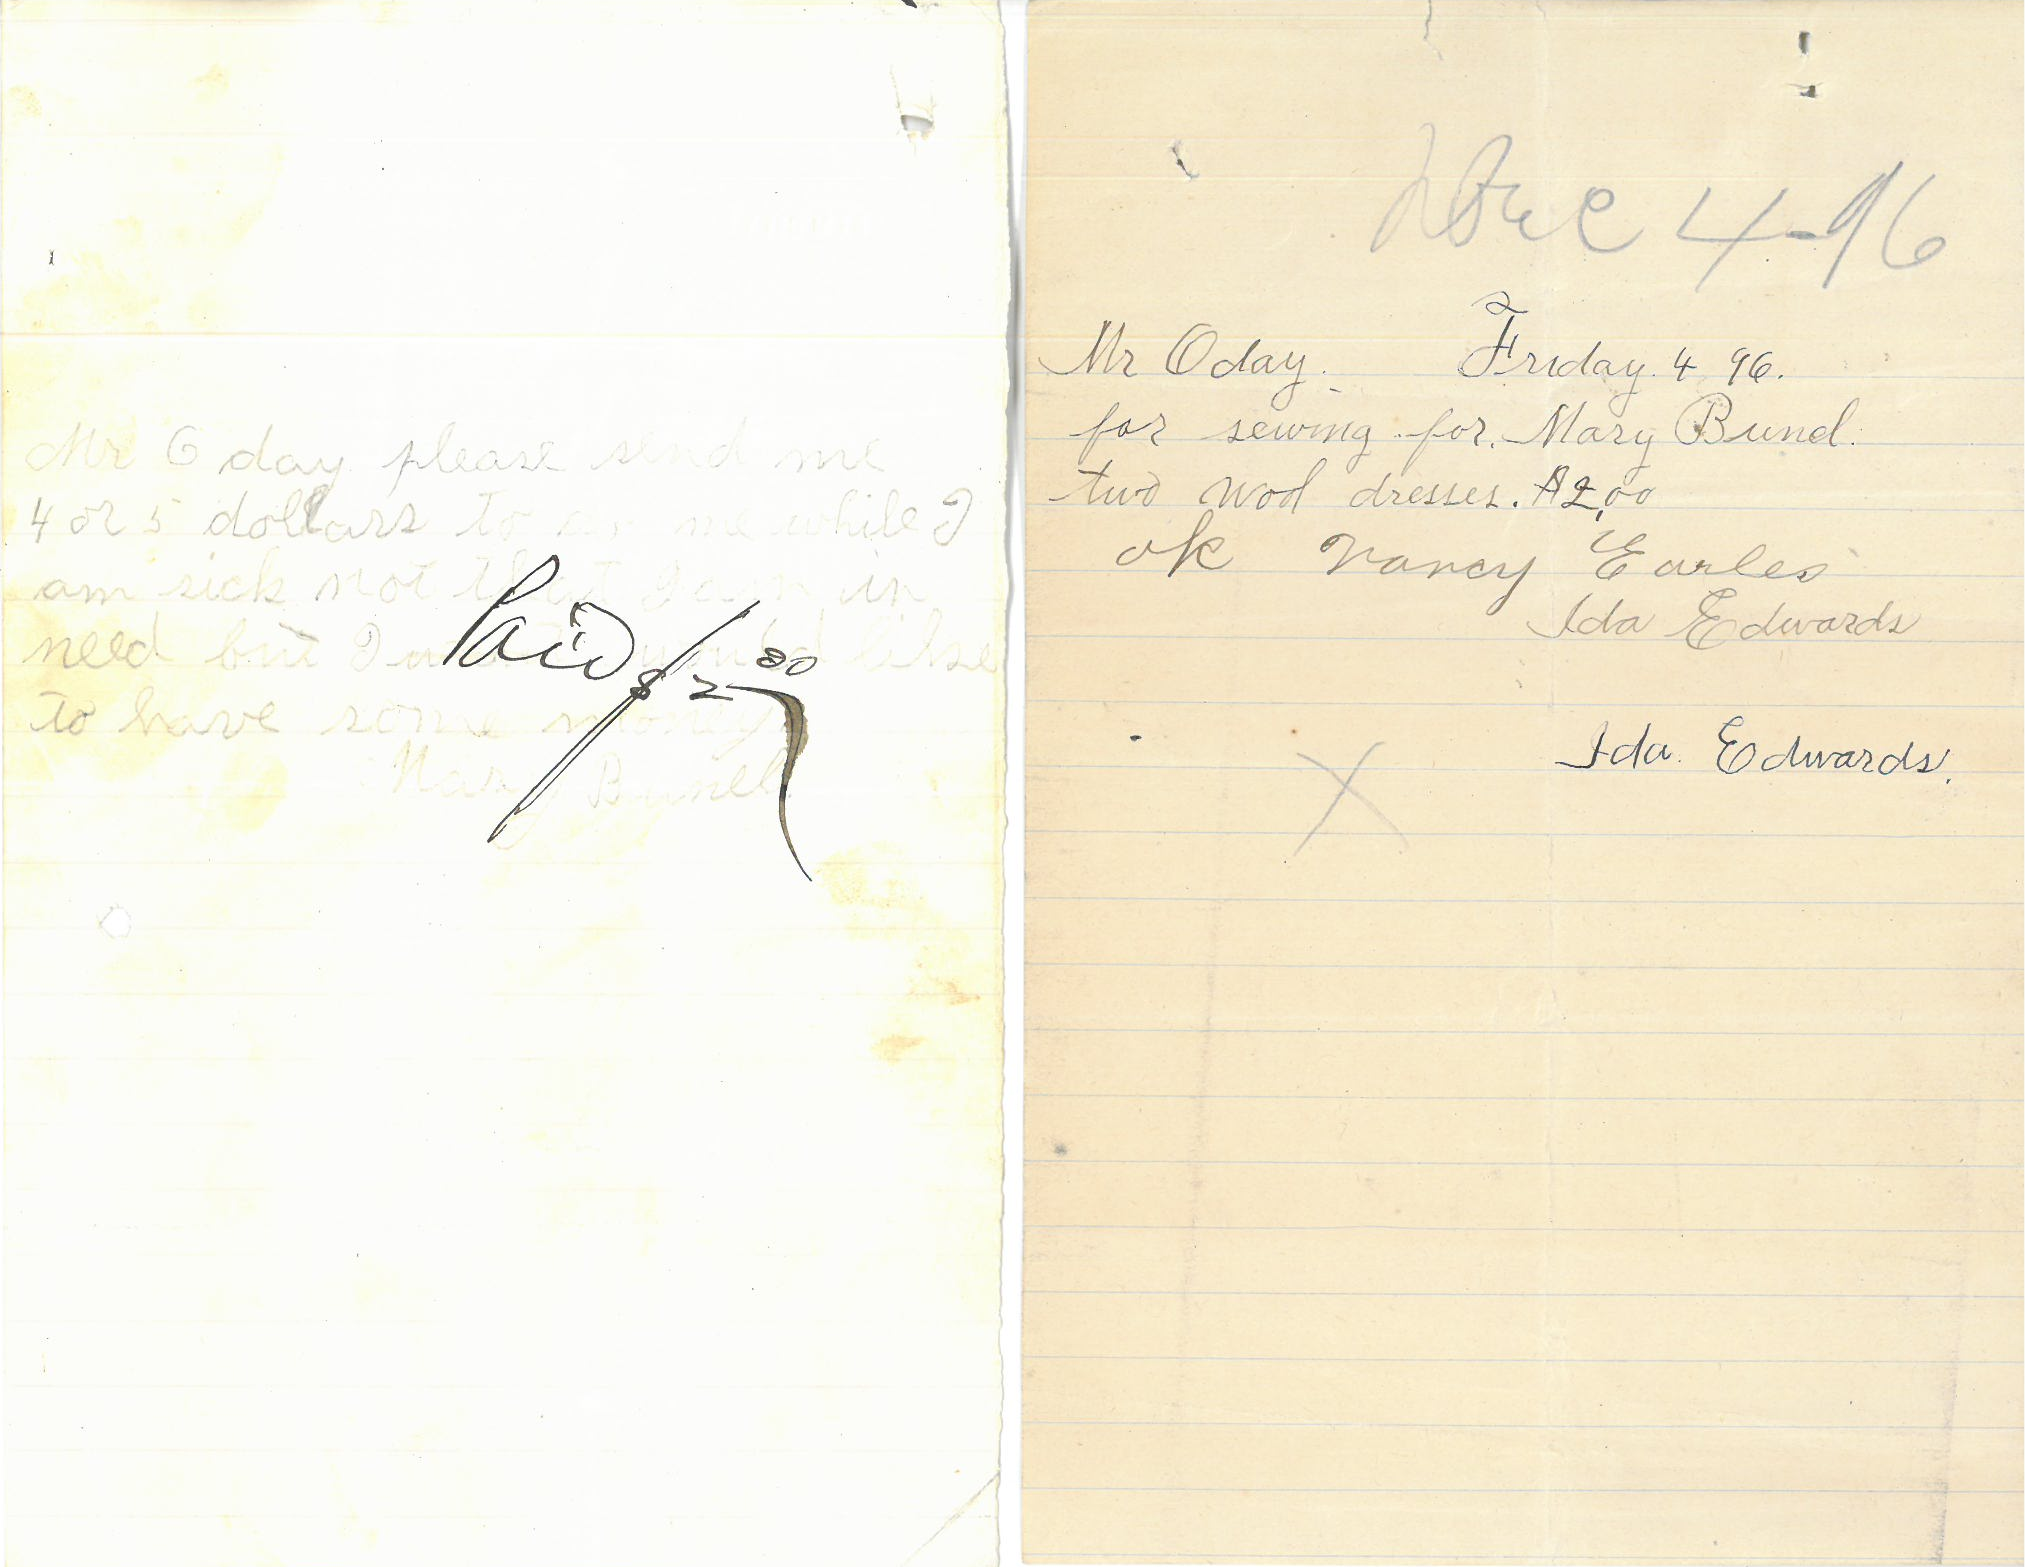 Mr Oday please send me
4 or 5 dollars to me while I
am sick not that I am in
need but I would like
to have some money
Mary Bunel
Paid
$2 00
Dec 4-96
Mr Oday. Friday. 4 96.
for sewing for. Mary Bund.
two wod dresses. $2,00
ok Nancy Earles
Ida Edwards
Ida. Edwards.
X